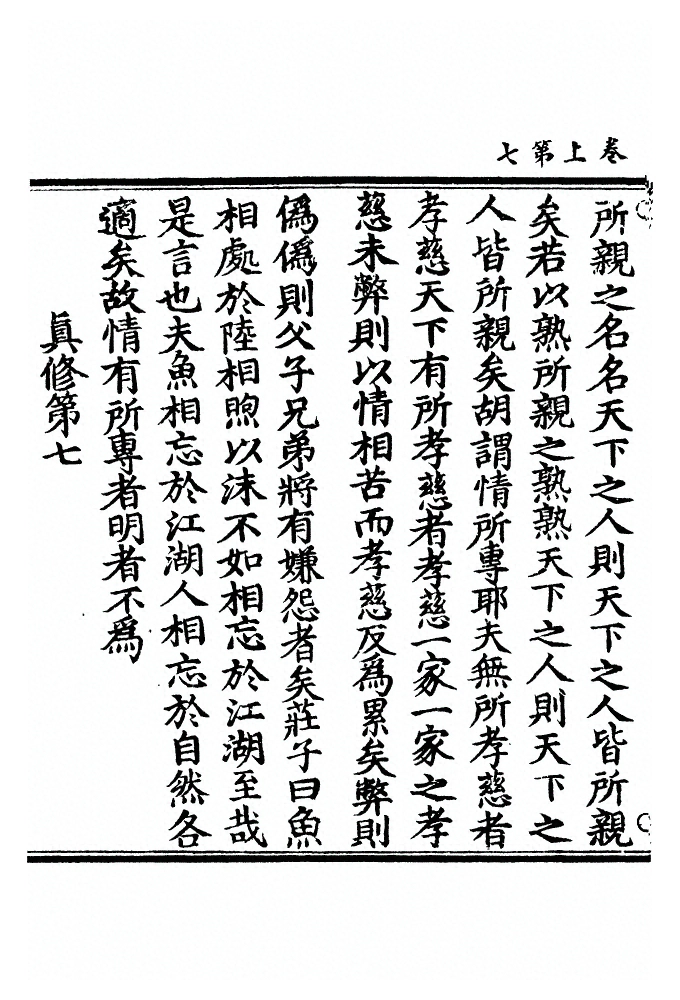 卷上第七
所親之名名天下之人則天下之人皆所親
矣若以熟所親之熟熟天下之人則天下之
人皆所親矣胡謂情所專耶夫無所孝慈者
孝慈天下有所孝慈者孝慈一家一家之孝
慈未弊則以情相苦而孝慈反爲累矣弊則
僞僞則父子兄弟將有嫌怨者矣莊子曰魚
相處於陸相喣以沫不如相忘於江湖至哉
是言也夫魚相忘於江湖人相忘於自然各
適矣故情有所專者明者不爲
眞修第七